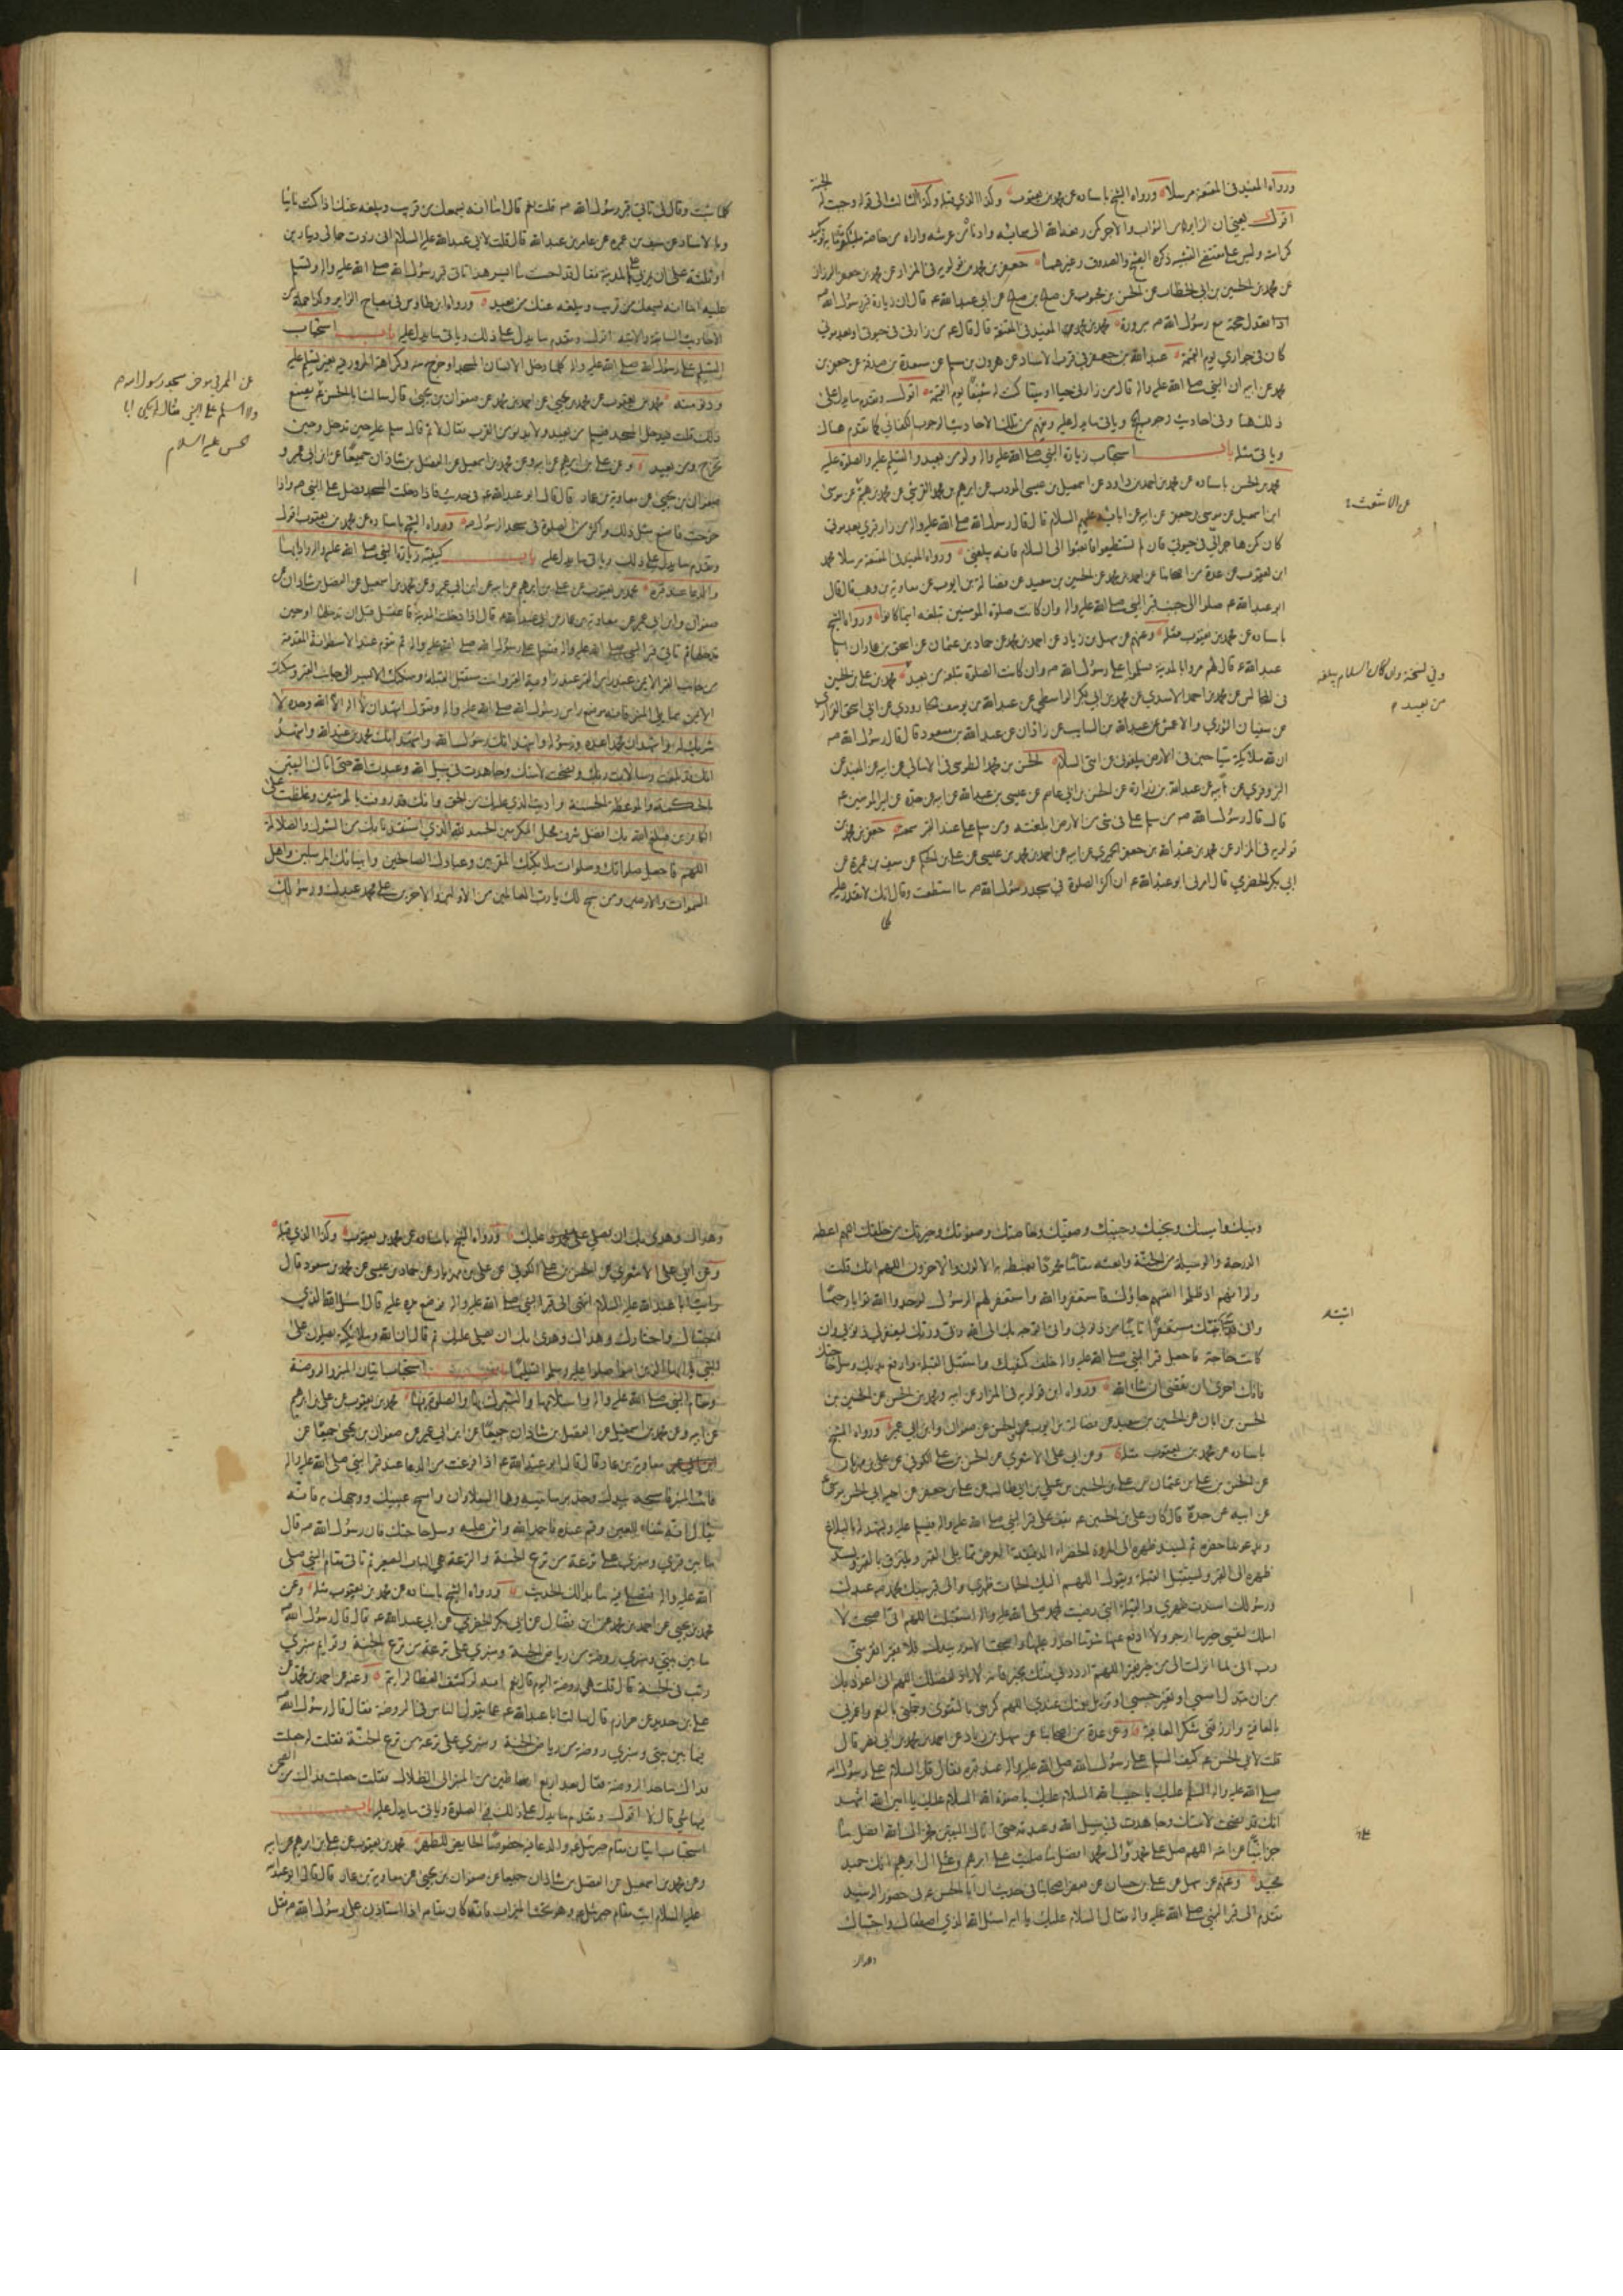 ورواه المفيد في المقنعة مرسلا ورواه الشيخ باسناده عن محمد بن يعقوب وكذا الذي قبله وكذا الثالث الى قوله وجبت له الجنة
اقول يعني ان الزاير له من الثواب والاجر كمن رفعه الله الى سمائه وادناه من عرشه واراه من خاصة ملائكته
كرامته وليس على مقتضى التشبيه ذكره الشيخ والصدوق وغيرهما جعفر بن محمد بن قولويه في المزار عن محمد بن جعفر الرزاز
عن محمد بن الحسين بن ابي الخطاب عن الحسن بن محبوب عن عن ابي عبد الله ع قال ان زيارة قبر رسول الله ص
تعدل حجة مع رسول الله ص مبرورة محمد بن محمد المفيد في المقنعة قال قال ع من زارني في حيوتي او بعد موتي
كان في جواري يوم القيمة عبد الله بن جعفر في قرب الاسناد عن هرون بن مسلم عن مسعدة بن صدقة عن جعفر بن
محمد عن ابيه ان النبي صلى الله عليه واله قال من زارني حيا او ميتا كنت له شفيعا يوم القيمة اقول وتقدم ما يدل على
ذلك هنا وفي احاديث وجوب الحج وياتي ما يدل عليه ويفهم من تلك الاحاديث الوجوب الكفائي كما تقدم هناك
وياتي مثله باب استحباب زيارة النبي صلى الله عليه واله ولو من بعيد والتسليم عليه والصلوة عليه
محمد بن الحسن باسناده عن محمد بن احمد بن داود عن اسمعيل بن عيسى المودب عن ابراهيم بن محمد القرشي عن محمد بن هيثم عن موسى
ابن اسمعيل عن موسى بن جعفر عن ابيه عن ابائه عليهم السلام قال قال رسول الله صلى الله عليه واله من زار قبري بعد موتي
كان كمن هاجر الي في حيوتي فان لم تستطيعوا فابعثوا الي السلام فانه يبلغني ورواه المفيد في المقنعة مرسلا محمد
ابن يعقوب عن عدة من اصحابنا عن احمد بن محمد عن الحسين بن سعيد عن فضالة بن ايوب عن معاوية بن وهب قال قال
ابو عبد الله ع صلوا الى جنب قبر النبي صلى الله عليه واله وان كانت صلوة المومنين تبلغه اينما كانوا ورواه الشيخ
باسناده عن محمد بن يعقوب مثله وعنهم عن سهل بن زياد عن احمد بن محمد عن حماد بن عثمان عن اسحق بن عمار ان ابا
عبد الله ع قال لهم مروا بالمدينة فسلموا على رسول الله ص وان كانت الصلوة تبلغه من بعيد محمد بن علي بن الحسين
في المجالس عن محمد بن احمد الاسدي عن محمد بن ابي بكر الواسطي عن عبد الله بن يوسف عن ابي اسحق الفزاري
عن سفيان الثوري والاعمش عن عبد الله بن السايب عن زاذان عن عبد الله بن مسعود قال قال رسول الله ص
ان لله ملائكة سياحين في الارض يبلغوني عن امتي السلام الحسن بن محمد الطوسي في الامالي عن ابيه عن المفيد عن
عن ابيه عن عبد الله بن عن الحسن بن ابي عاصم عن عيسى بن عبد الله عن ابيه عن جده عن امير المومنين ع
قال قال رسول الله ص من سلم علي في شئ من الارض ابلغته ومن سلم علي عند القبر سمعته جعفر بن محمد بن
قولويه في المزار عن محمد بن عبد الله بن جعفر الحميري عن ابيه عن احمد بن محمد بن عيسى عن علي بن الحكم عن سيف بن عميرة عن
ابي بكر الحضرمي قال امرني ابو عبد الله ع ان اكثر الصلوة في مسجد رسول الله ص ما استطعت وقال انك لا تقدر عليه
كلما
عن الاشعث
وفي نسخة وان كان السلام يبلغه
من بعيد
كلما شئت وقال لي تاتي قبر رسول الله ص قلت نعم قال اما انه يسمعك من قريب ويبلغه عنك اذا كنت نائيا
وبالاسناد عن سيف بن عميرة عن عامر بن عبد الله قال قلت لابي عبد الله عليه السلام اني زدت جمالي دينارين
او ثلثة على ان يمر بي على المدينة فقال قد احسنت ما ايسر هذا تاتي قبر رسول الله صلى الله عليه واله وتسلم
عليه اما انه يسمعك من قريب ويبلغه عنك من بعيد ورواه ابن طاوس في مصباح الزاير وكذا جملة من
الاحاديث السابقة والاتية اقول وتقدم ما يدل على ذلك وياتي ما يدل عليه باب استحباب
التسليم على رسول الله صلى الله عليه واله كلما دخل الانسان المسجد او خرج منه وكراهة المرور فيه بغير تسليم عليه
ودنو منه محمد بن يعقوب عن محمد بن يحيى عن احمد بن محمد عن صفوان بن يحيى قال سالت ابا الحسن ع
قلت فيدخل المسجد فيسلم من بعيد ولا يدنو من القبر فقال لا ثم قال سلم عليه حين تدخل وحين
تخرج ومن بعيد وعن علي بن ابرهيم عن ابيه وعن محمد بن اسمعيل عن الفضل بن شاذان جميعا عن ابن ابي عمير و
صفوان بن يحيى عن معاوية بن عمار قال قال ابو عبد الله ع في حديث فاذا دخلت المسجد فصل على النبي ص واذا
خرجت فاصنع مثل ذلك واكثر من الصلوة في مسجد الرسول ص ورواه الشيخ باسناده عن محمد بن يعقوب اقول
وتقدم ما يدل على ذلك وياتي ما يدل عليه باب كيفية زيارة النبي صلى الله عليه واله وادابها
والدعا عند قبره محمد بن يعقوب عن علي بن ابرهيم عن ابيه عن ابن ابي عمير وعن محمد بن اسمعيل عن الفضل بن شاذان عن
صفوان وابن ابي عمير عن معاوية بن عمار عن ابي عبد الله ع قال اذا دخلت المدينة فاغتسل قبل ان تدخلها او حين
تدخلها ثم تاتي قبر النبي صلى الله عليه واله فتسلم على رسول الله صلى الله عليه واله ثم تقوم عند الاسطوانة المقدمة
من جانب القبر الايمن عند راس القبر عند زاوية القبر وانت مستقبل القبلة ومنكبك الايسر الى جانب القبر ومنكبك
الايمن مما يلي المنبر فانه موضع راس رسول الله صلى الله عليه واله وتقول اشهد ان لا اله الا الله وحده لا
شريك له واشهد ان محمدا عبده ورسوله واشهد انك رسول الله واشهد انك محمد بن عبد الله واشهد
انك قد بلغت رسالات ربك ونصحت لامتك وجاهدت في سبيل الله وعبدت الله حتى اتاك اليقين
بالحكمة والموعظة الحسنة واديت الذي عليك من الحق وانك قد رؤفت بالمومنين وغلظت على
الكافرين فبلغ الله بك افضل شرف محل المكرمين الحمد لله الذي استنقذنا بك من الشرك والضلالة
اللهم فاجعل صلواتك وصلوات ملائكتك المقربين وعبادك الصالحين وانبيائك المرسلين واهل
السموات والارضين ومن سبح لك يا رب العالمين من الاولين والاخرين على محمد عبدك ورسولك
عن الممر في مؤخر مسجد رسول الله ص
ولا اسلم على النبي فقال لم يكن ابا
الحسن عليه السلام
ونبيك وامينك ونجيك وحبيبك وصفيك وخاصتك وصفوتك وخيرتك من خلقك اللهم اعطه
الدرجة والوسيلة من الجنة وابعثه مقاما محمودا يغبطه به الاولون والاخرون اللهم انك قلت
ولو انهم اذ ظلموا انفسهم جاؤك فاستغفروا الله واستغفر لهم الرسول لوجدوا الله توابا رحيما
واني اتيت نبيك مستغفرا تائبا من ذنوبي واني اتوجه بك الى الله ربي وربك ليغفر لي ذنوبي وان
كانت حاجة فاجعل قبر النبي صلى الله عليه واله خلف كتفيك واستقبل القبلة وارفع يديك وسل حاجتك
فانك احرى ان تقضى ان شاء الله ورواه ابن قولويه في المزار عن ابيه ومحمد بن الحسن عن الحسين بن
الحسن بن ابان عن الحسين بن سعيد عن فضالة بن ايوب عن صفوان وابن ابي عمير ورواه الشيخ
باسناده عن محمد بن يعقوب مثله وعن ابي علي الاشعري عن الحسن بن علي الكوفي عن علي بن مهزيار
عن الحسن بن علي بن عثمان بن علي بن الحسين بن علي بن ابي طالب عن علي بن جعفر عن اخيه ابي الحسن موسى
عن ابيه عن جده قال كان علي بن الحسين ع يقف على قبر النبي صلى الله عليه واله فيسلم عليه ويشهد له بالبلاغ
ويدعو بما حضره ثم يسند ظهره الى المروة الخضراء الدقيقة العرض مما يلي القبر ويلتزق بالقبر ويسند
ظهره الى القبر ويستقبل القبلة ويقول اللهم اليك الجات ظهري والى قبر نبيك محمد ص عبدك
ورسولك اسندت ظهري والقبلة التي رضيت لمحمد صلى الله عليه واله استقبلت اللهم اني اصبحت لا
املك لنفسي خير ما ارجو ولا ادفع عنها شر ما احذر عليها واصبحت الامور بيدك فلا فقير افقر مني
رب اني لما انزلت الي من خير فقير اللهم ارددني منك بخير فانه لا راد لفضلك اللهم اني اعوذ بك
من ان تبدل اسمي او تغير جسمي او تزيل نعمتك عندي اللهم كرمني بالتقوى وجملني بالنعم واعمرني
بالعافية وارزقني شكر العافية وعن عدة من اصحابنا عن سهل بن زياد عن احمد بن محمد بن ابي نصر قال
قلت لابي الحسن ع كيف السلام على رسول الله صلى الله عليه واله عند قبره فقال قل السلام على رسول الله
صلى الله عليه واله السلام عليك يا حبيب الله السلام عليك يا صفوة الله السلام عليك يا امين الله اشهد
انك قد نصحت لامتك وجاهدت في سبيل الله وعبدته حتى اتاك اليقين فجزاك الله افضل ما
جزى نبيا عن امته اللهم صل على محمد وال محمد افضل ما صليت على ابرهيم وعلى ال ابرهيم انك حميد
مجيد وعنهم عن سهل عن علي بن حسان عن بعض اصحابنا في حديث ان ابا الحسن ع في حضور الرشيد
تقدم الى قبر النبي صلى الله عليه واله فقال السلام عليك يا ابه اسئل الله الذي اصطفاك واجتباك
وهداك
وهداك وهدى بك ان يصلي عليك ورواه الشيخ باسناده عن محمد بن يعقوب وكذا الذي قبله
وعن ابي علي الاشعري عن الحسن بن علي الكوفي عن علي بن مهزيار عن حماد بن عيسى عن محمد بن مسعود قال
رايت ابا عبد الله عليه السلام انتهى الى قبر النبي صلى الله عليه واله فوضع يده عليه قال اسئل الله الذي
اجتباك واختارك وهداك وهدى بك ان يصلي عليك ثم قال ان الله وملائكته يصلون على
النبي يا ايها الذين امنوا صلوا عليه وسلموا تسليما باب استحباب اتيان المنبر والروضة
ومقام النبي صلى الله عليه واله واستلامها والتبرك بها والصلوة فيها محمد بن يعقوب عن علي بن ابرهيم
عن ابيه وعن محمد بن اسمعيل عن الفضل بن شاذان جميعا عن ابن ابي عمير عن صفوان بن يحيى جميعا عن
معاوية بن عمار قال قال ابو عبد الله ع اذا فرغت من الدعا عند قبر النبي صلى الله عليه واله
فائت المنبر فامسحه بيدك وخذ برمانتيه وهما السفلاوان وامسح عينيك ووجهك به فانه
يقال انه شفاء للعين وقم عنده فاحمد الله واثن عليه وسل حاجتك فان رسول الله ص قال
ما بين قبري ومنبري على ترعة من ترع الجنة والترعة هي الباب الصغير ثم تاتي مقام النبي صلى
الله عليه واله فتصلي فيه ما بدا لك الحديث ورواه الشيخ باسناده عن محمد بن يعقوب مثله وعن
محمد بن يحيى عن احمد بن محمد عن ابن فضال عن ابي بكر الحضرمي عن ابي عبد الله ع قال قال رسول الله ص
ما بين بيتي ومنبري روضة من رياض الجنة ومنبري على ترعة من ترع الجنة وقوائم منبري
رتب في الجنة قال قلت هي روضة اليوم قال نعم انه لو كشف الغطا لرايتم وعنه عن احمد بن محمد عن
علي بن حديد عن مرازم قال سالت ابا عبد الله ع عما يقول الناس في الروضة فقال قال رسول الله ص
فيما بين بيتي ومنبري روضة من رياض الجنة ومنبري على ترعة من ترع الجنة فقلت له جعلت
فداك فما حد الروضة فقال بعد اربع اساطين من المنبر الى الظلال فقلت جعلت فداك من الصحن
فيها شئ قال لا اقول وتقدم ما يدل على ذلك في الصلوة وياتي ما يدل عليه باب
استحباب اتيان مقام جبرئيل ع والدعا فيه خصوصا الحايض للطهر محمد بن يعقوب عن علي بن ابرهيم عن ابيه
وعن محمد بن اسمعيل عن الفضل بن شاذان جميعا عن صفوان بن يحيى عن معاوية بن عمار قال قال ابو عبد الله
عليه السلام ائت مقام جبرئيل ع وهو تحت الميزاب فانه كان مقامه اذا استاذن على رسول الله ص فقل